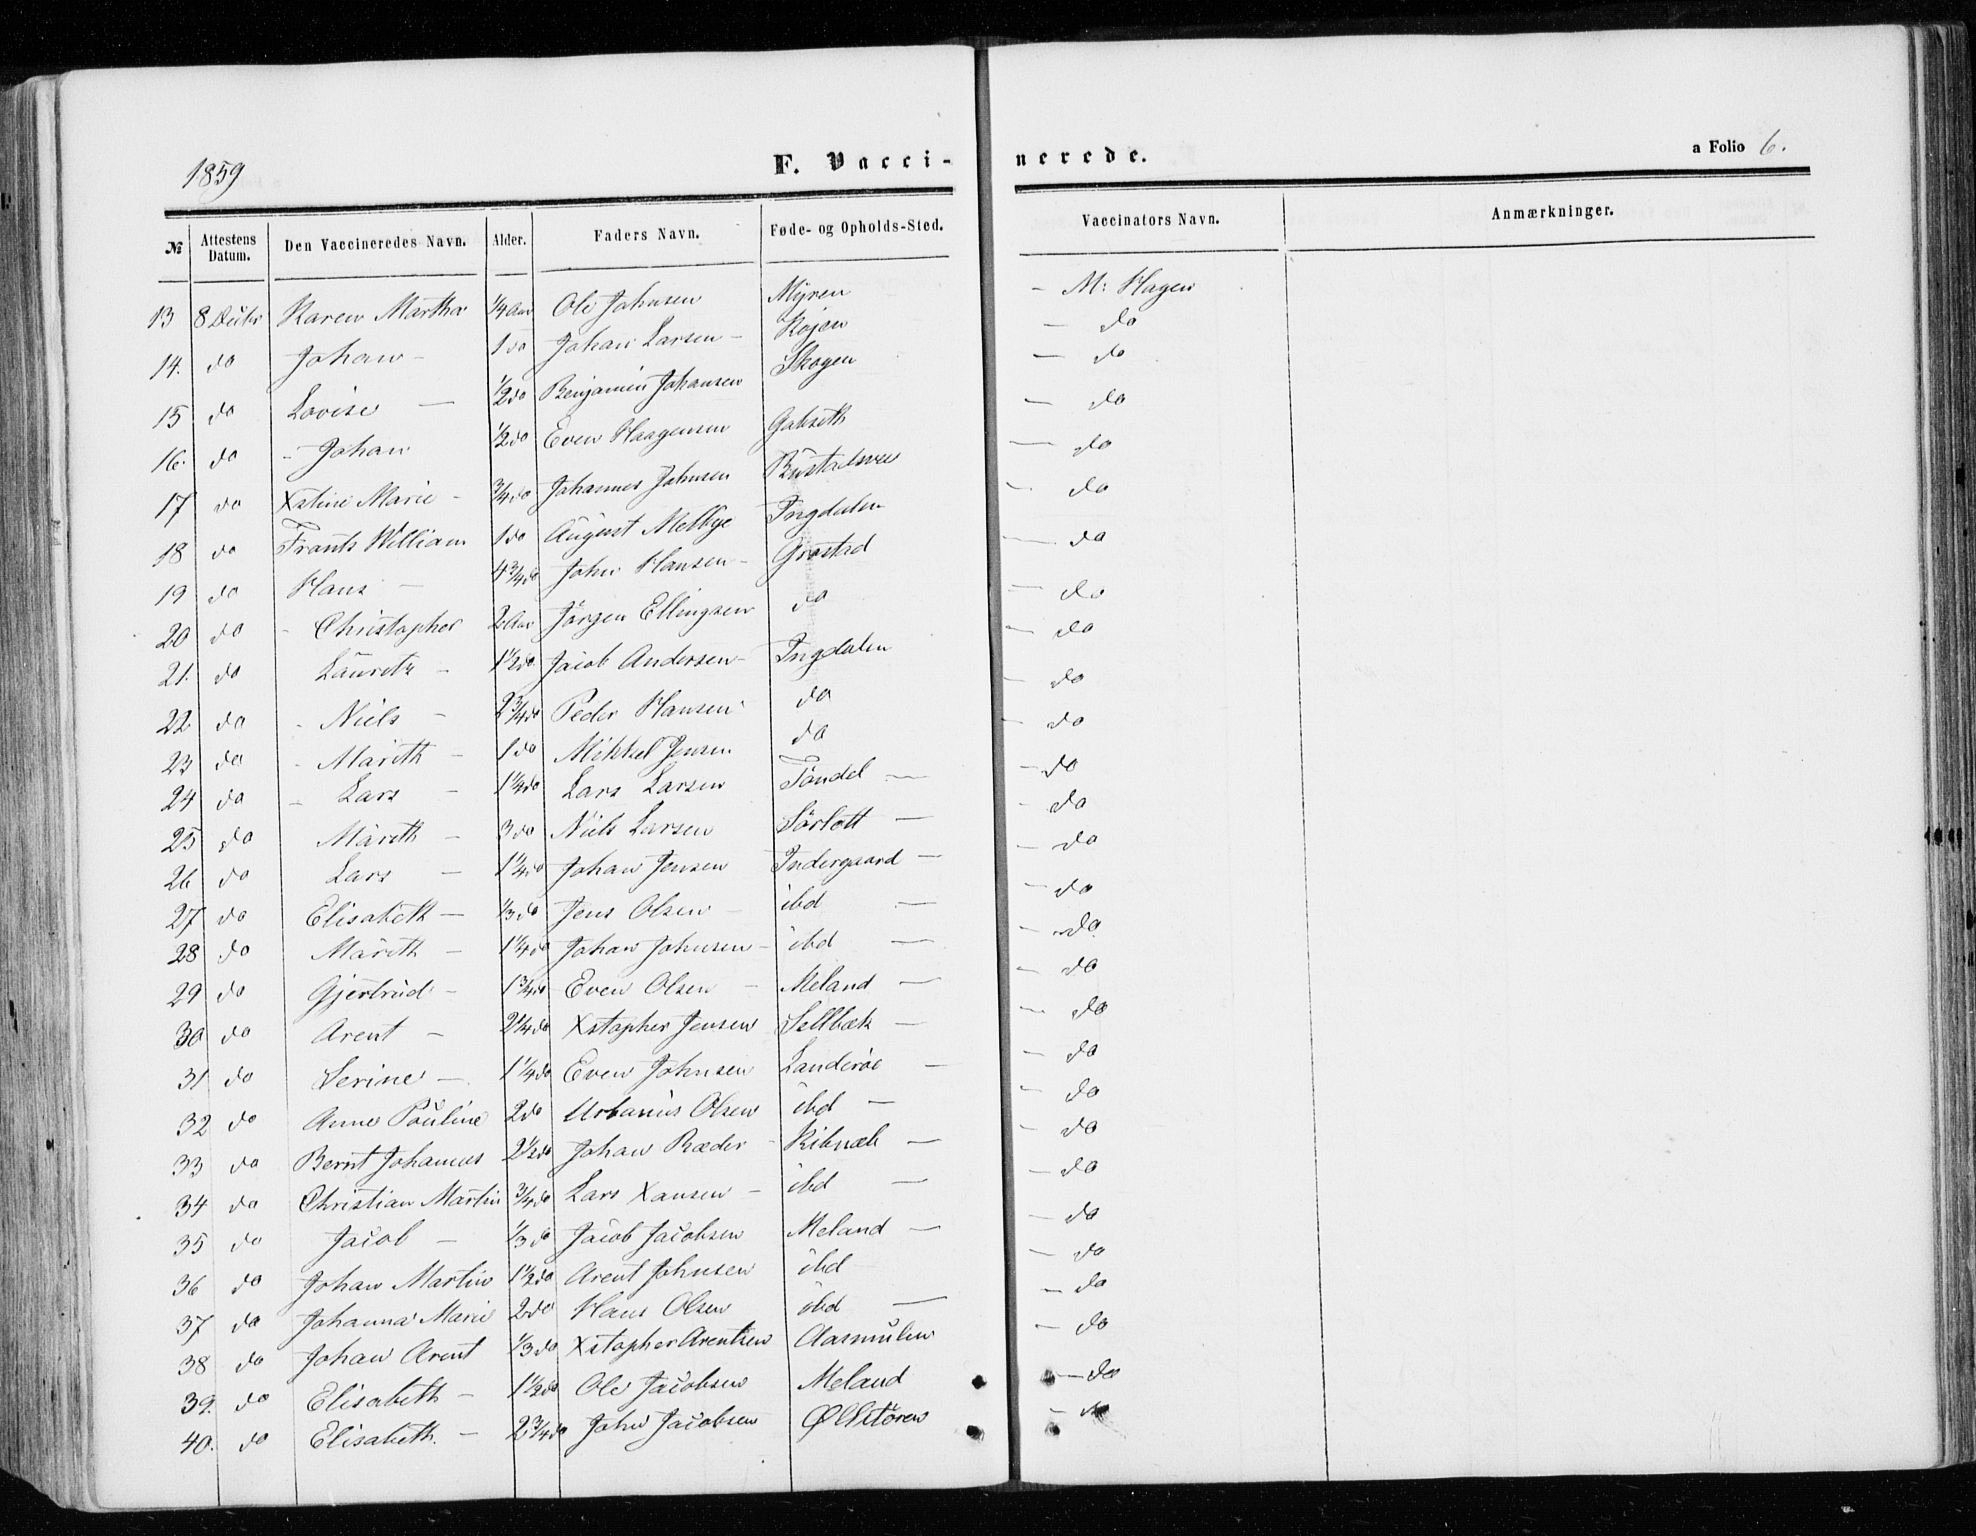 1859
F. Vacci-
nerede.
a Folio 6.
№ Attestens Datum. Den Vaccineredes Navn. Alder. Faders Navn. Føde- og Opholds-Sted. Vaccinators Navn. Anmærkninger.
13 8 Karen Martha 1/4 Aar Ole Johnsen Myren - M: Hagen
14. do Johan - 1 do Johan Larsen - - do
15 do Lovise - 1/2 do Benjamin Johansen Skogen - do
16. do - Johan 1/2 do Even Haagensen - do
17 do Xstine Marie - 3/4 do Johannes Johnsen - do
18 do Frants William 1 do August Melbye Ingdalen - do
19 do Hans - 4 3/4 do John Hansen - Grøstad - do
20 do - Christopher 2 Aar Jörgen Ellingsen do - do
21. do Lauritz - 1 1/2 do. Jacob Andersen - Ingdalen - do
22 do - Niels - 2 3/4 do Peder Hansen do - do
23 do - Mårith - 1 do Mikkel Jensen do - do
24 do - Lars - 1 1/4 do Lars Larsen Töndel - - do
25 do Mårith - 3 do Niels Larsen Sörlott - - do
26 do Lars - 1 1/4 do Johan Jensen Indergaard - - do
27 do Elisabeth - 1/3 do Jens Olsen - ibd - - do
28 do Mårith - 1 1/4 do Johan Johnsen - ibd - - do
29 do Gjertrud - 1 3/4 do Even Olsen - Meland - - do
30 do Arent - 2 1/4 do Xstopher Jensen Selbæk - - do
31 do Serine - 1 1/4 do Even Johnsen Landeröe - - do
32 do Anne Pauline 2 do Urbanus Olsen ibd - - do
33 do Bernt Johannes 2 1/2 do Johan Ræder - - - do
34 do Christian Martin 3/4 do Lars Xansen - ibd - - do
35 do Jacob - 1/3 do Jacob Jacobsen Meland - - do
36 do Johan Martin 1 1/2 do Arent Johnsen ibd - - do
37 do Johanna Marie 2 do Hans Olsen ibd - - do
38 do Johan Arent 1/3 do Xstopher Arentsen Aasmulen - do
39. do Elisabeth - 1 1/2 do Ole Jacobsen Meland - do
40. do Elisabeth. - 2 3/4 do John Jacobsen - do